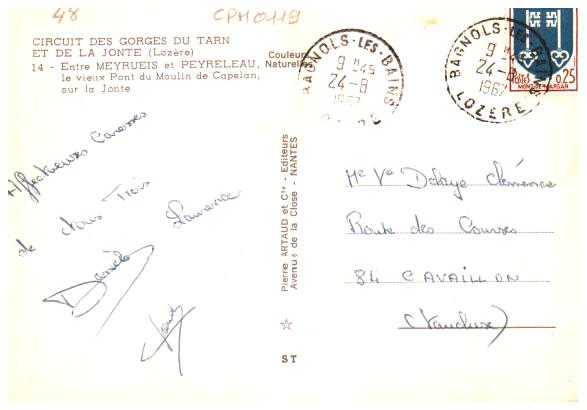 48
CPM0119
CIRCUIT DES GORGES DU TARN
ET DE LA JONTE (Lozère)
14 - Entre MEYRUEIS et PEYRELEAU,
le vieux Pont du Moulin de Capelan,
sur la Jonte
Couleurs
Naturelles
BAGNOLS-LES-BAINS
9 H 45
24-8
1967
LOZÈRE
BAGNOLS-LES-BAINS
9 H 45
24-8
1967
LOZÈRE
POSTES
0,25
MONT-DE-MARSAN
Affectueuses Caresses
de Nous Trois
Laurence
Daniel
Pierre ARTAUD et Cie - Editeurs
Avenue de la Close - NANTES
ST
Me Ve Delaye Clémence
Route des Courses
84 CAVAILLON
(Vaucluse)